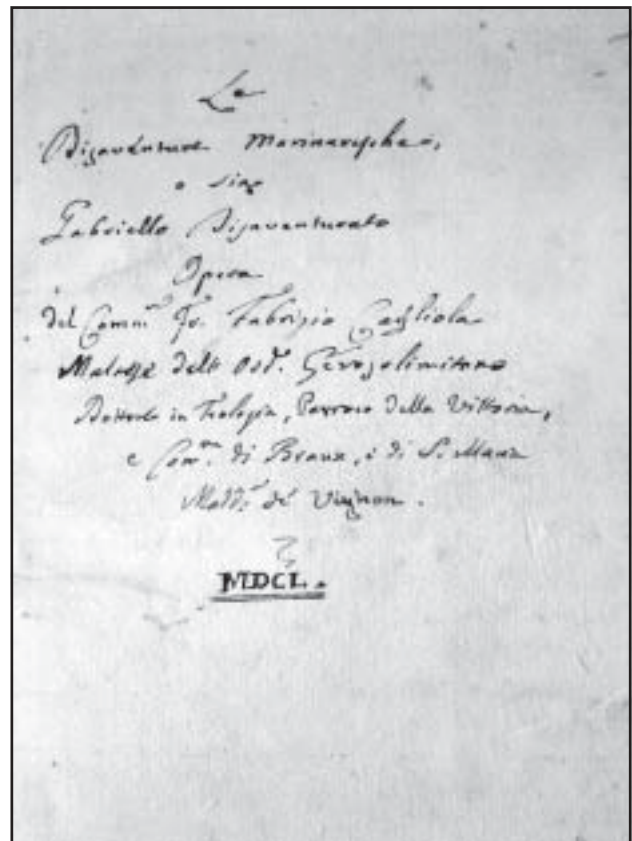 Le
Disavventure Marinaresche,
o sia
Gabriello Disavventurato
Opera
del Comm.r Fr. Fabrizio Cagliola
Maltese dell' Ord.e Gerosolimitano
Dottore in Teologia, Parroco della Vittoria,
e Com.r di Braux, e di S. Maria
de Vignon.
MDCL.